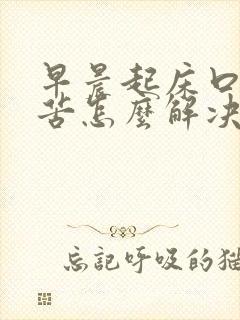 早晨起床口
苦怎麼解决
忘記呼吸的猫